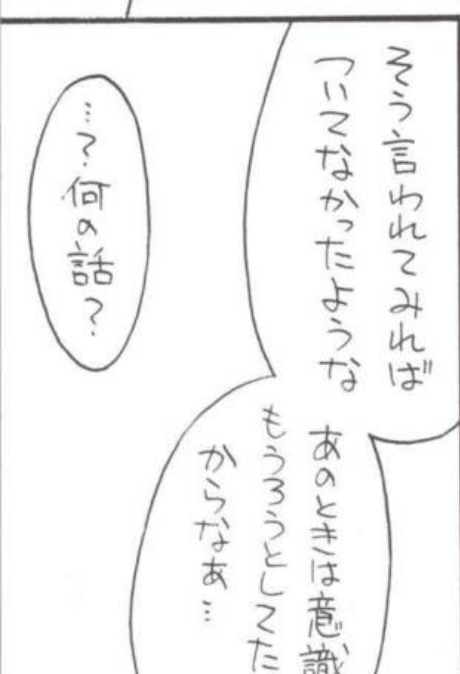 そう言われてみれば
ついてなかったような
あのときは意識
もうろうとしてた
からなあ…
…?何の話?